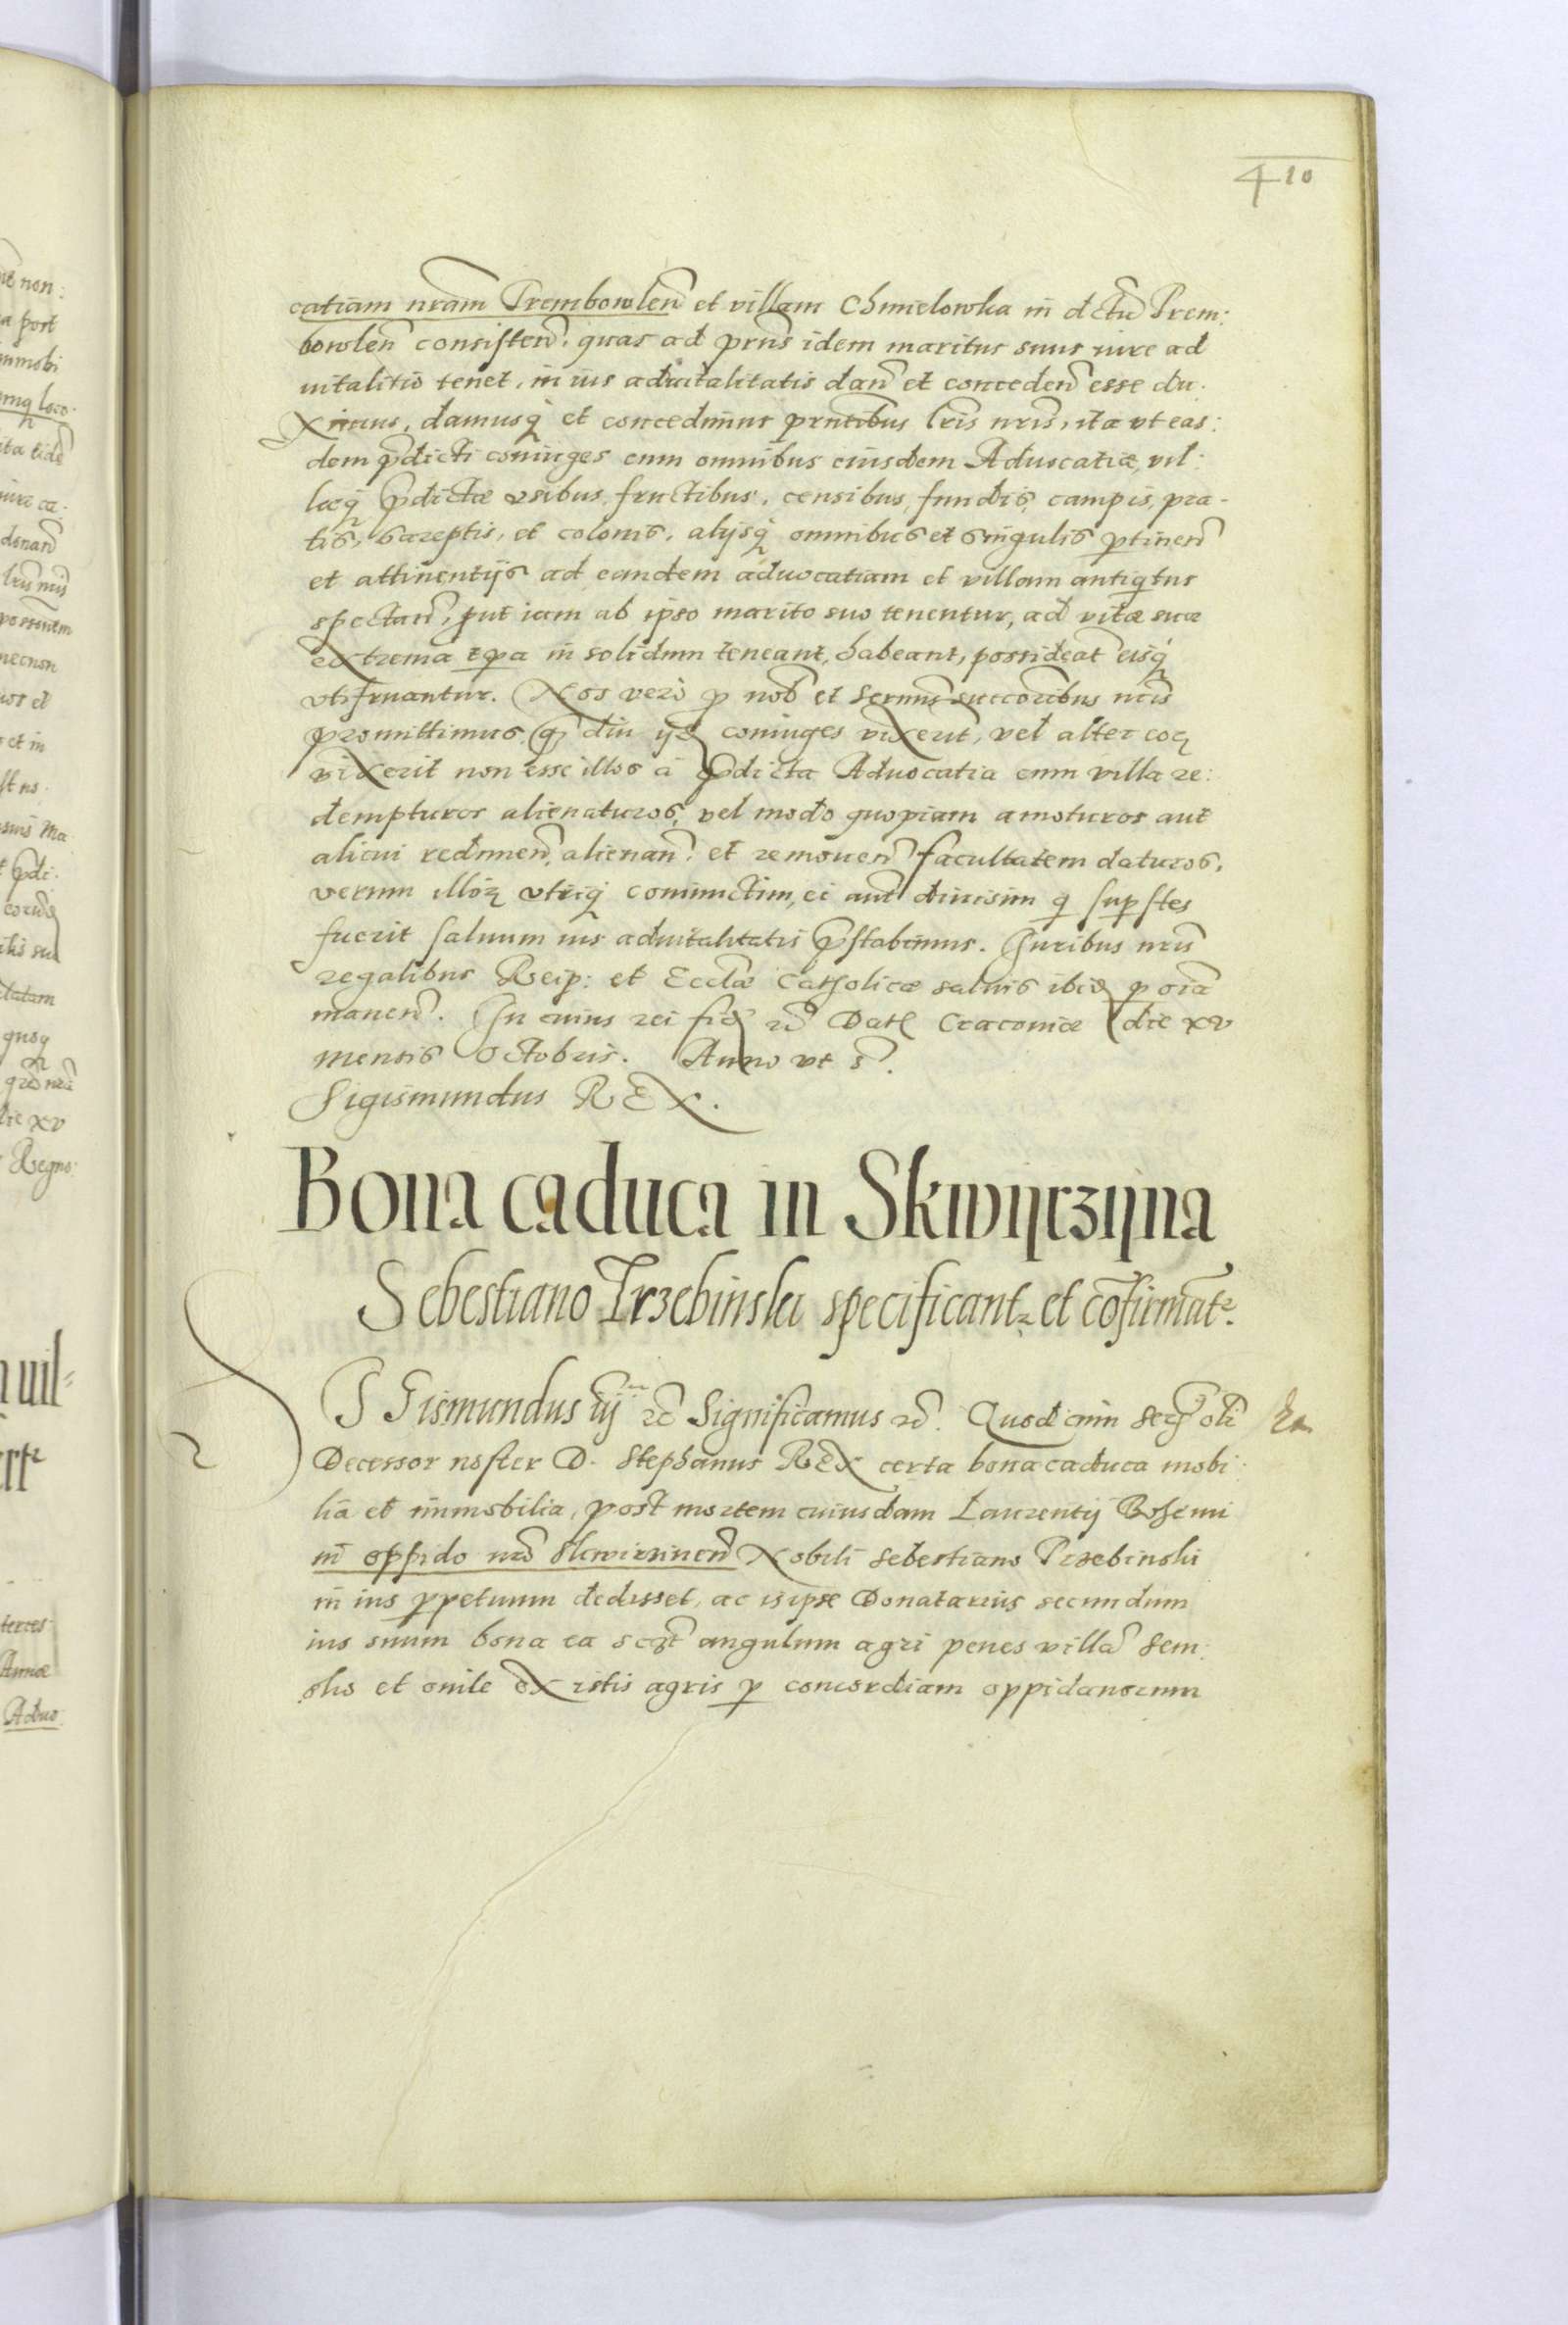 410
catiam nram Trembowlen et villam Chmielowka in dctu Trem:
bowlen consisten. quas ad prns idem maritus suus iure ad
uitalitio tenet, in ius aduitalitatis dan et conceden esse du.
ximus, damusq et concedimus prntibus lris nris, ita vt eas:
dem pdicti coniuges cum omnibus eiusdem Aduocatiæ, vil:
læq pdictæ vsibus, fructibus, censibus, fundis, campis, pra-
tis, et colonis, alijsq omnibus et singulis ptinen
et attinentijs ad eandem aduocatiam et villam antiqtus
spectan, put iam ab ipso marito suo tenentur, ad vitæ suæ
extrema tpa in solidum teneant, habeant, possideat eisq
vtifruantur. Nos vero p nob et sermis succoribus nris
promittimus, q diu ijd coniuges vixerit, vel alter eoq
vixerit non esse illos a pdicta Aduocatia cum villa re:
dempturos alienaturos, vel modo quopiam amoturos aut
alicui redimen, alienan, et remouen facultatem daturos,
verum illoz vtriq coniunctim, ei aut diuisim q supstes
fuerit saluum ius aduitalitatis pstabimus. Iuribus nris
regalibus Reip: et Ecclæ Catholicæ saluis ibid p oia
manen. In cuius rei fid rc Dat Cracouiæ die xv
mensis Octobris. Anno vt s.
Sigismundus REX.
Bona caduca in Skwÿrzÿna
Sebestiano Trzebinski specificantr et cofirmatr.
SIGismundus iij us rc Significamus rc. Quod cum sers oli
Decessor noster D. Stephanus REX certa bona caduca mobi:
lia et immobilia, post mortem cuiusdam Laurentij Bohemi
in oppido nro Skwirzinen Nobili Sebestiano Trzebinski
in ius ppetuum dedisset, ac is ipse Donatarius secundum
ius suum bona ea angulum agri penes villa Sem:
sko et ouile ex istis agris p concordiam oppidanorum